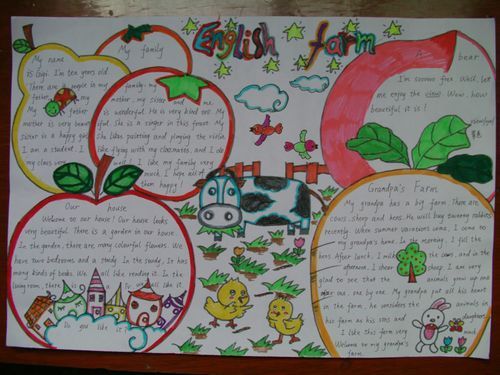 English farm
My name
is Gigi. I'm ten years old.
There are people in my
father, my
My father
mother is very beautiful.
sister is a happy girl.
I am a student. I
my class very
My family
family: my
mother, my sister and me
is wonderful. He is very kind of. My
She is a singer in this favor. My
She likes painting and playing the violin.
like flying with my classmates, and I do
well! I like my family very
much, I hope all of
them happy!
A bear
I'm soooooo free. Well, let
me enjoy the view. Wow, how
beautiful it is!
Our house
Welcome to our house! Our house looks
very beautiful. There is a garden in our house.
In the garden, there are many colourful flowers. We
have two bedrooms and a study. In the study, it has
many kinds of books. We all like reading it. In the
living room, there is a all like it.
Do you like it?
Grandpa's Farm
My grandpa has a big farm. There are
cows, sheep and hens. He will buy running rabbits
recently. When summer vacations come, I come to
my grandpa's home. In the morning, I fill the
hens. After lunch, I milk the cows, and in the
afternoon, I shear sheep. I am very
glad to see that the animals grow up one
by one. My grandpa put all his heart
in the farm, he considers the animals in
his farm as his sons and daughters.
I like this farm very much.
Welcome to my grandpa's
farm.